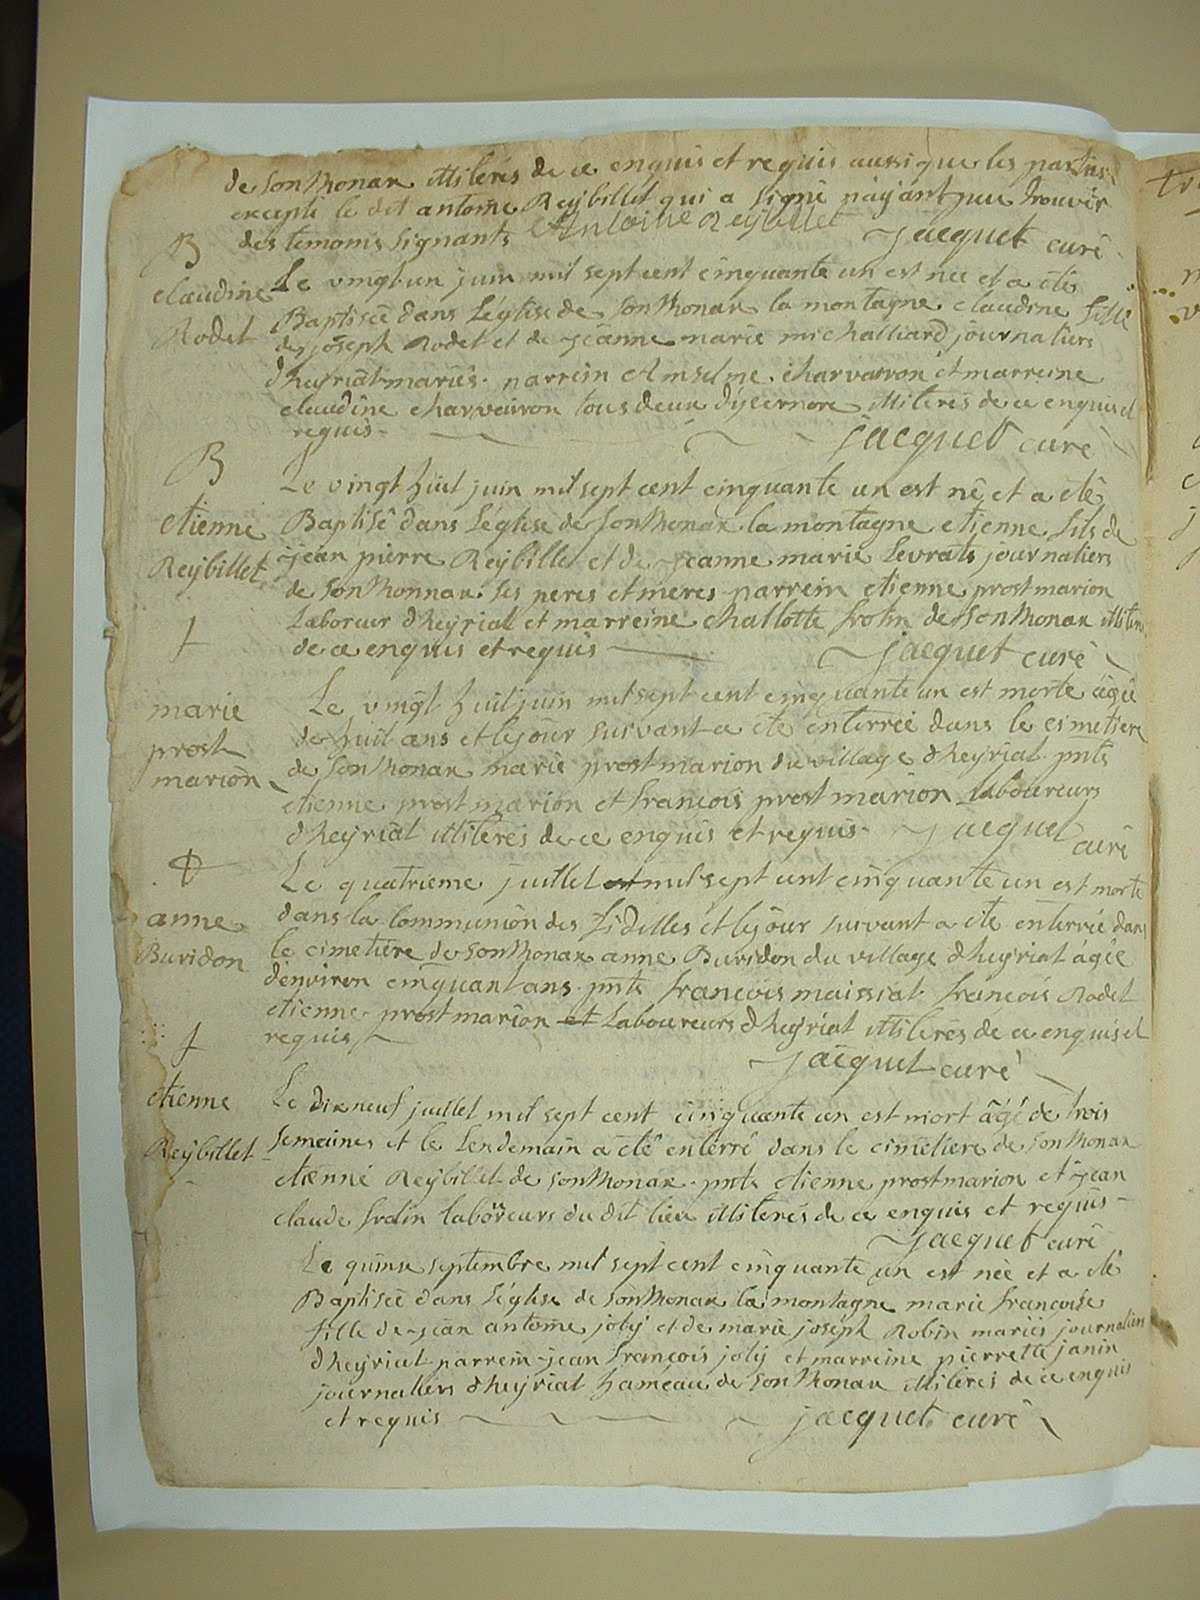 de Sonthonax illiterés de ce enquis et requis aussi que les parties
excepté le dit antoine Reybillet qui a signé n'ayant peu trouver
des temoins signants Antoine Reybillet
Jacquet curé
B
claudine
Rodet
Le vingt un juin mil sept cent cinquante un est née et a eté
Baptisée dans L'église de Sonthonax la montagne claudine fille
de joseph Rodet et de jeanne marie michalliard journaliers
d'heyriat mariés. parrein Anselme charvairon et marreine
claudine charvairon tous deux d'yzernore illiterés de ce enquis et
requis
jacquet curé
B
etienne
Reybillet
Le vingt huit juin mil sept cent cinquante un est né et a eté
Baptisé dans L'église de Sonthonax la montagne etienne fils de
jean pierre Reybillet et de jeanne marie Levrat journaliers
de Sonthonnax. ses peres et meres parrein etienne prost marion
Laboreur d'heyriat et marreine challotte de Sonthonax illiterés
de ce enquis et requis
Jacquet curé
†
marie
prost
marion
Le vingt huit juin mil sept cent cinquante un est morte agée
de huit ans et le jour survant a eté enterrée dans le cimetiere
de Sonthonax marie prost marion du village d'heyriat pnts
etienne prost marion et francois prost marion laboureurs
d'heyriat illiterés de ce enquis et requis.
Jacquet curé
†
anne
Buridon
Le quatrieme juillet mil sept cent cinquante un est morte
dans la Communion des fidelles et le jour survant a eté enterrée dans
le cimetiére de Sonthonax anne Buridon du village d'heyriat agée
d'environ cinquant ans. pnts francois maissiat. francois Rodet
etienne prost marion et Laboureurs d'heyriat illiterés de ce enquis et
requis
jacquet curé
†
etienne
Reybillet
Le dix neuf juillet mil sept cent cinquante un est mort âgé de trois
Semaines et le Lendemain a eté enterré dans le cimetiere de Sonthonax
etienne Reybillet de Sonthonax. pnts etienne prost marion et jean
claude laboreurs du dit lieu illiterés de ce enquis et requis
Jacquet curé
Le quinse septembre mil sept cent cinquante un est née et a eté
Baptisée dans L'église de Sonthonax la montagne marie francoise
fille de jean antoine joly et de marie joseph Robin mariés journaliers
d'heyriat parrein jean francois joly et marreine pierrette janin
journaliers d'heyriat hameau de Sonthonax illiterés de ce enquis
et requis
jacquet curé